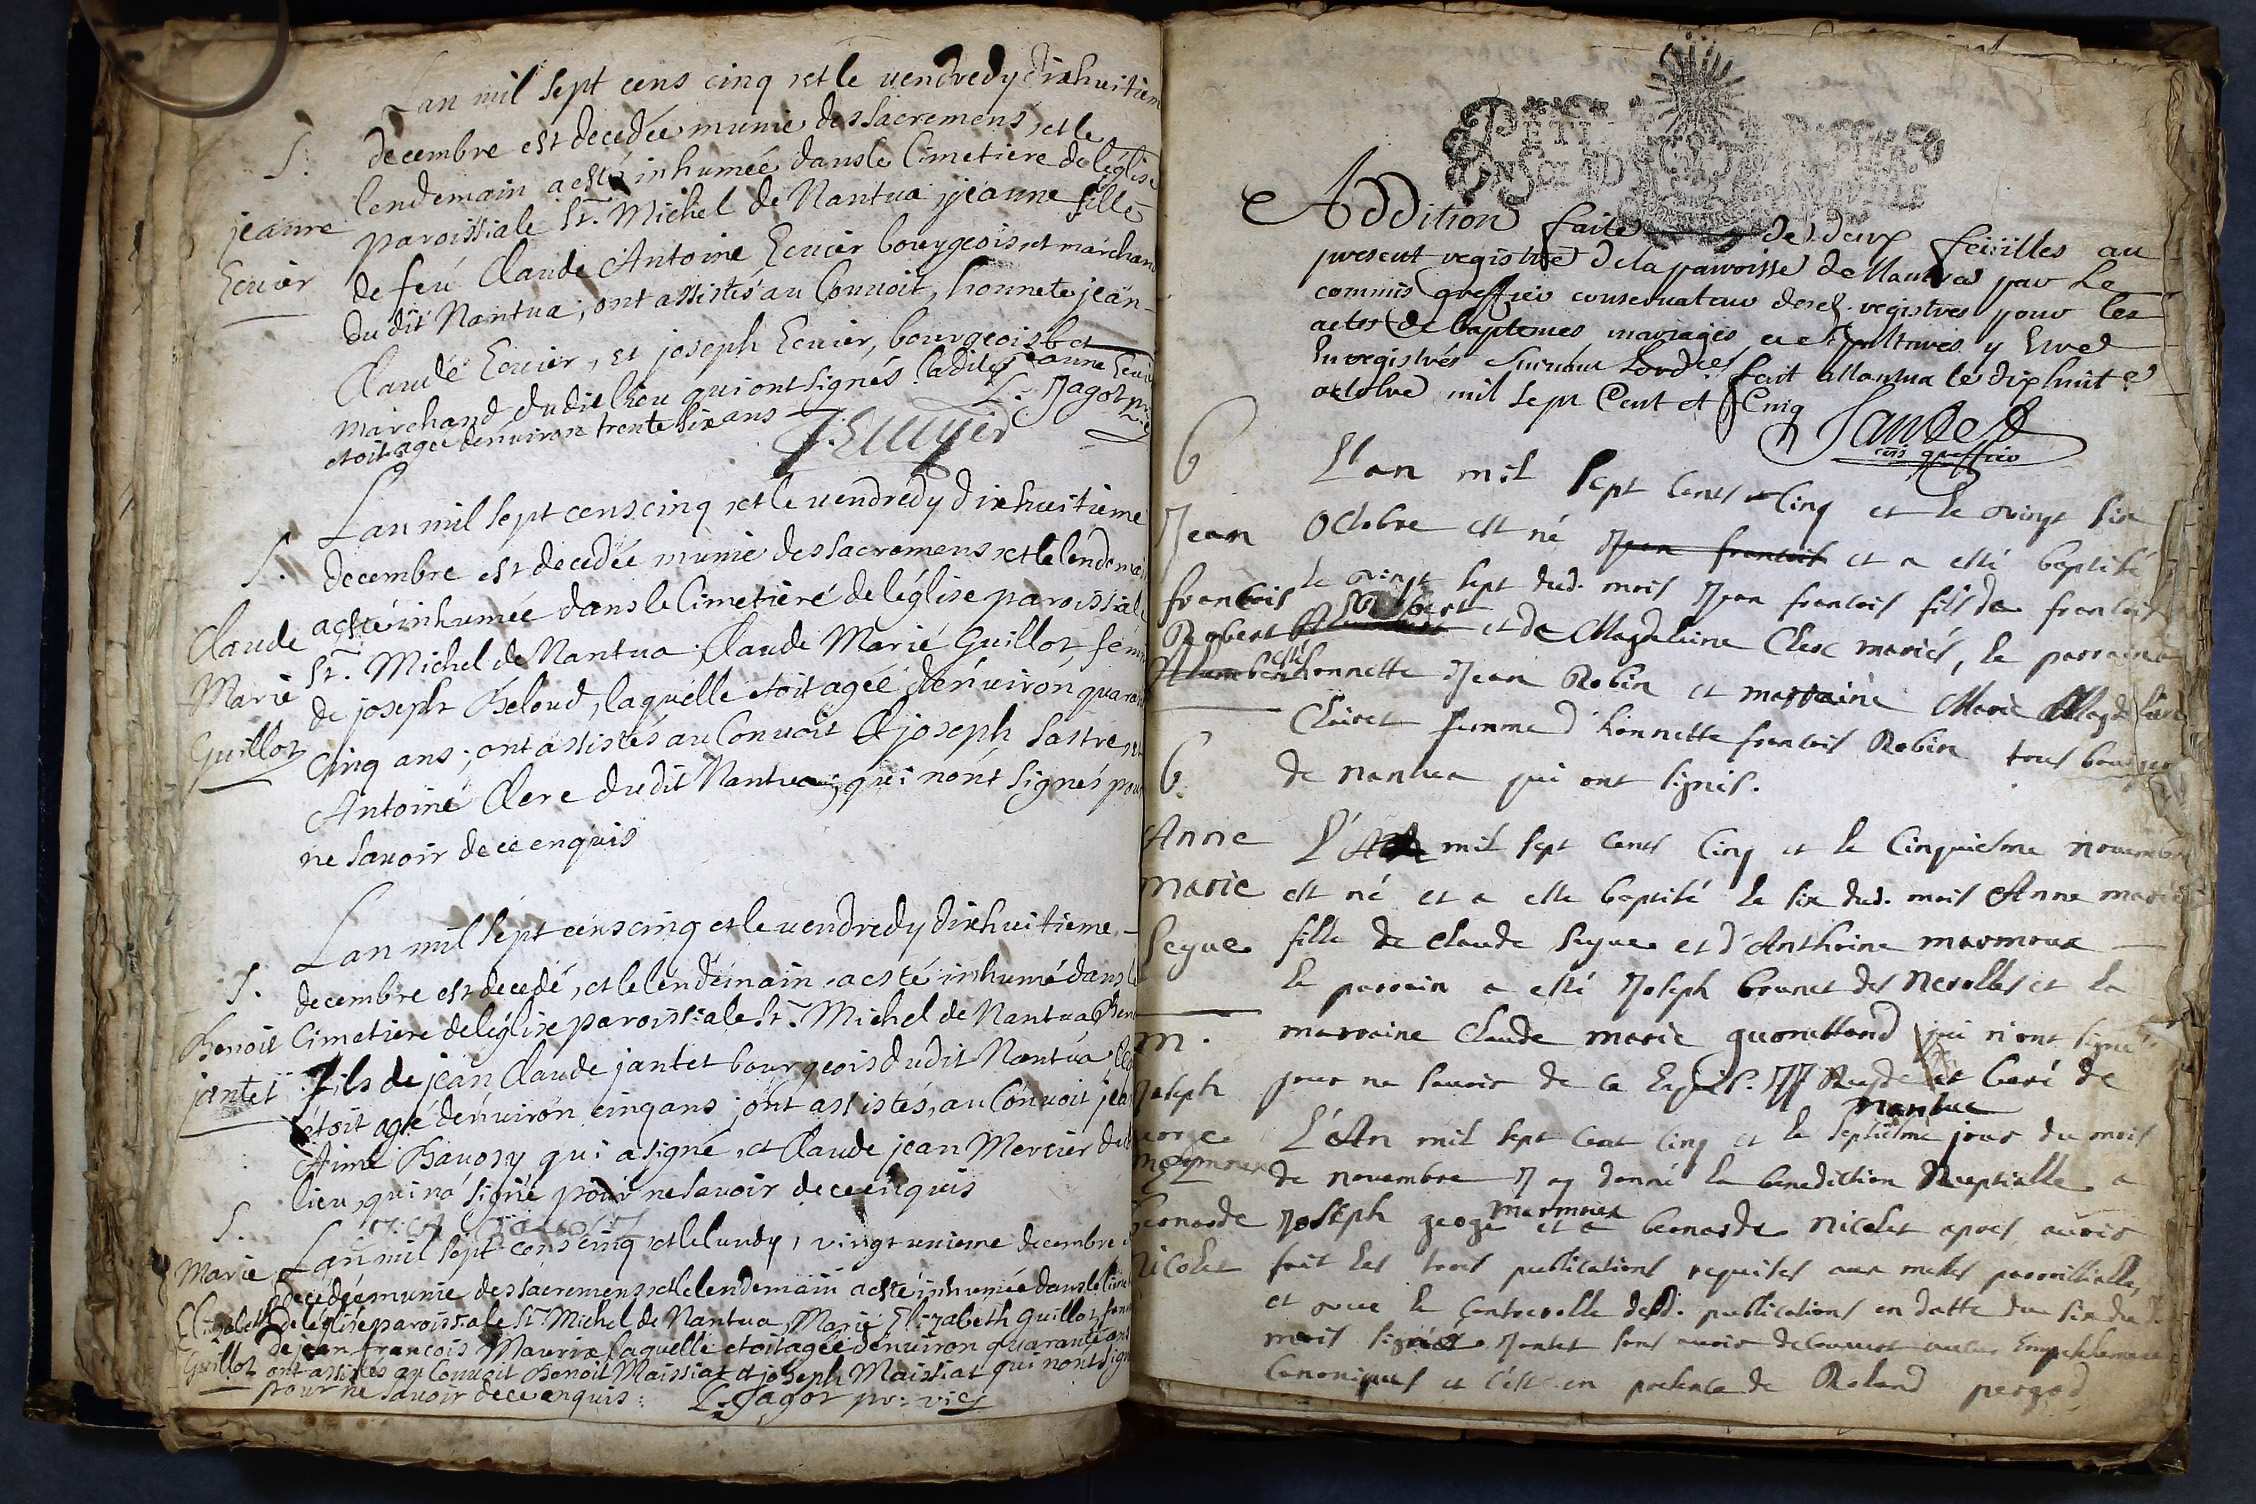 Lan mil sept cens cinq et le vendredy dixhuitiem
S.
decembre est decedée munie des sacremens, et le
lendemain a esté inhumée dans le Cimetiere de léglise
jeanne
paroissiale St. Michel de Nantua jeanne fille
Ecuier
de feu Claude Antoine Ecuier bourgeois et marchand
dudit Nantua; ont assistés au Convoit, honnete jean-
Claude Ecuier, et joseph Ecuier, bourgeois et
marchand dudit lieu qui ont signés. ladite jeanne Ecuier
etoit agée denuiron trente six ans
L. Jagot
J. Ecuyer
Lan mil sept cens cinq et le vendredy dixhuitieme
S.
decembre est decedée munie des sacremens et le lendemain
Claude
a esté inhumée dans le Cimetiere de léglise paroissiale
Marie
St. Michel de Nantua Claude Marie Guillot, fem
Guillot
de joseph Beloud, laquelle etoit agée denuiron quarante
Cinq ans; ont assistés au Convoit joseph Sastre, et
Antoine Clere dudit Nantua qui nont signés pour
ne savoir de ce enquis
Lan mil sept cens cinq et le vendredy dixhuitieme
S.
decembre est decedé, et le lendemain a esté inhumé dans le
Benoit
Cimetiere de léglise paroissiale St. Michel de Nantua Ben
jantet
Fils de jean Claude jantet bourgeois dudit Nantua
étoit agé denuiron cinq ans; ont assistés, au Convoit jean
Aimé Bavozy qui a signé, et Claude jean Mercier du
lieu, qui na signé pour ne savoir de ce enquis
S.
Marie
Lan mil sept cens cinq et le lundy, vingt unieme decembre
decedée munie des sacremens, et le lendemain a esté inhumée dans le Cime
Elizabeth
de léglise paroissiale St. Michel de Nantua, Marie Elizabeth Guillot, fem
Guillot
de jean francois Maurix, laquelle etoit agée denuiron quarante ans
ont assistés au Convoit Benoit Maissiat et joseph Maissiat qui nont sign
pour ne savoir de ce enquis:
L. Jagot pr: vic
Addition faite de deux feüilles au
present registre de la parroisse de Nantua par le
commis greffier conservateur des registres pour les
actes de baptemes mariages et sepultures y Estre
Enregistrés suivant lordre fait a Nantua le dixhuit
octobre mil sept Cent et Cinq
Jantet
greffier
b
L'an mil sept Cents Cinq et le vingt six
Jean
Octobre est né Jean francois et a esté baptisé
francois
le vingt sept dud. mois Jean francois fils de francois
Robert
et de Magdeleine Clerc mariés, le parrain a
esté honnette Jean Robin et marraine Marie Magdeleine
Clairet femme d'honnette francois Robin tous bourgeois
b
de nantua qui ont signés.
Anne
L'An mil sept Cents Cinq et le Cinquiesme novembre
marie
est né et a este baptisé le six dud. mois Anne marie
Seyue
fille de Claude Seyue et d'Anthoine marmoux
le parrain a esté Joseph brunet des Nerolles et la
m.
marraine Claude marie guonettand qui n'ont signé
Joseph
pour ne sauoir de ce Enquis. Curé de
nantua
george
L'An mil sept Cent Cinq et le septiesme jour du mois
de novembre J ay donné la benediction Nuptialle a
bernarde
Joseph george marmoux et a bernarde nicolet apres auoir
nicolet
fait les trois publications requises aux messes parroissialle,
et veue le Controolle desd. publications en datte du six du d.
mois signé Jantet sans auoir decouuert aucun Empechement
Canonique et c'est en presence de Roland pergod